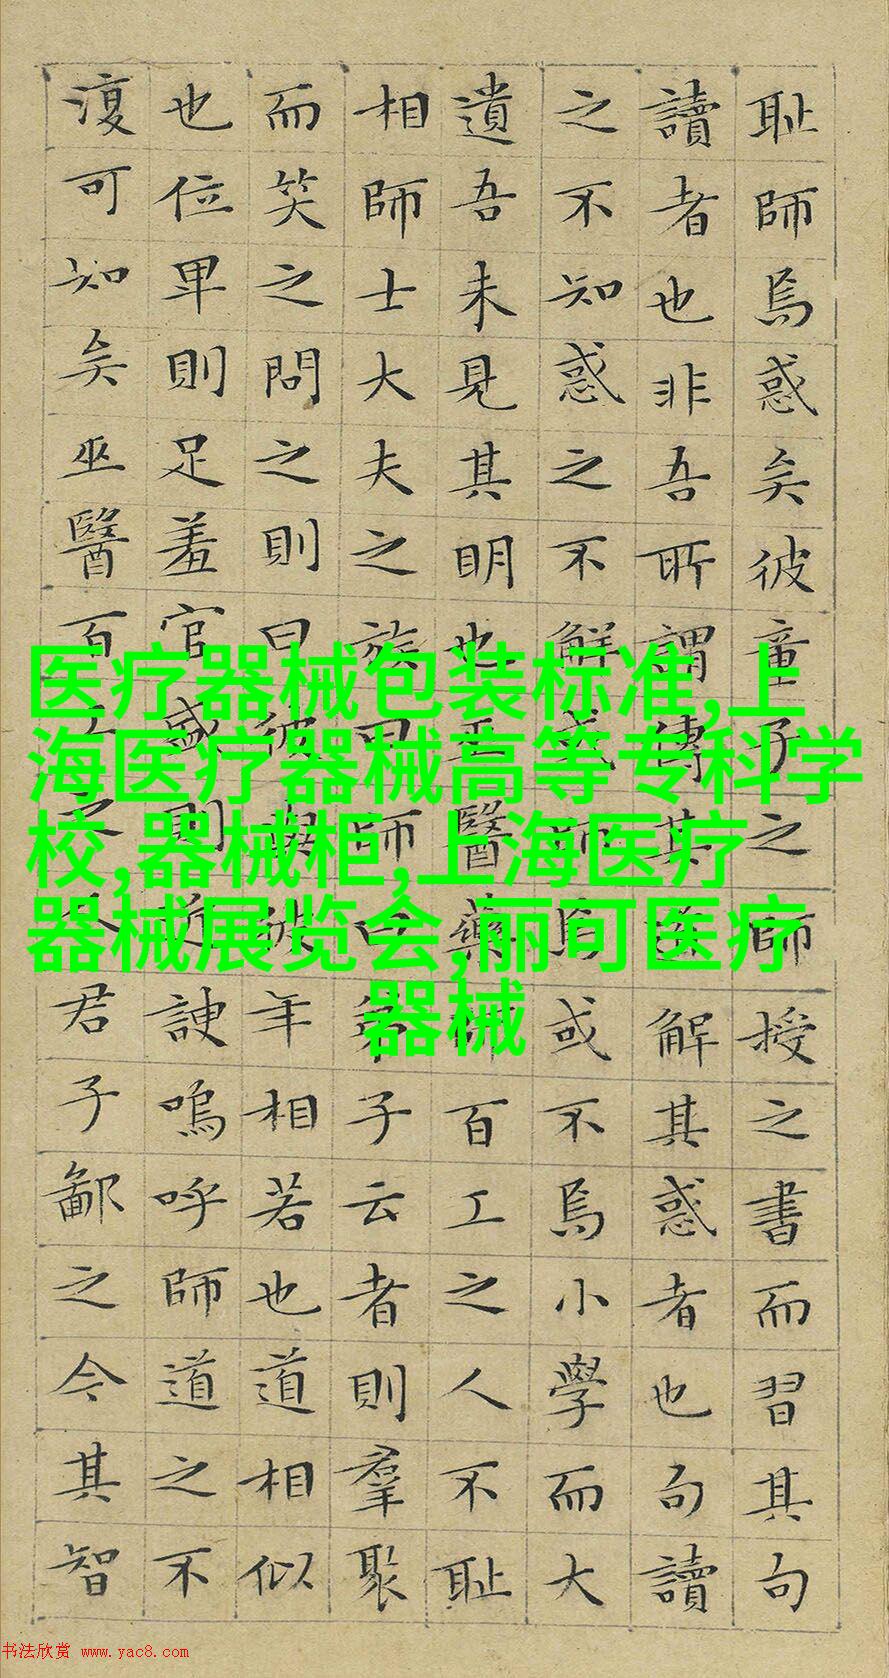 耻師焉惑矣彼童子之師授之書而習其句
讀者也非吾所謂傳其道解其惑者也句讀
之不知惑之不解或師焉或不焉小學而大
遺吾未見其明也巫醫藥師百工之人不耻
相師士大夫之族曰師曰弟子云者則羣聚
而笑之問之則曰彼與彼年相若也道相似
也位卑則足羞官盛則近諛嗚呼師道之不
復可知矣巫醫百工之人君子鄙之今其智
医疗器械包装标准,上
海医疗器械高等专科学
校,器械柜,上海医疗
器械展览会,丽可医疗
器械
书法欣赏 www.yac8.com